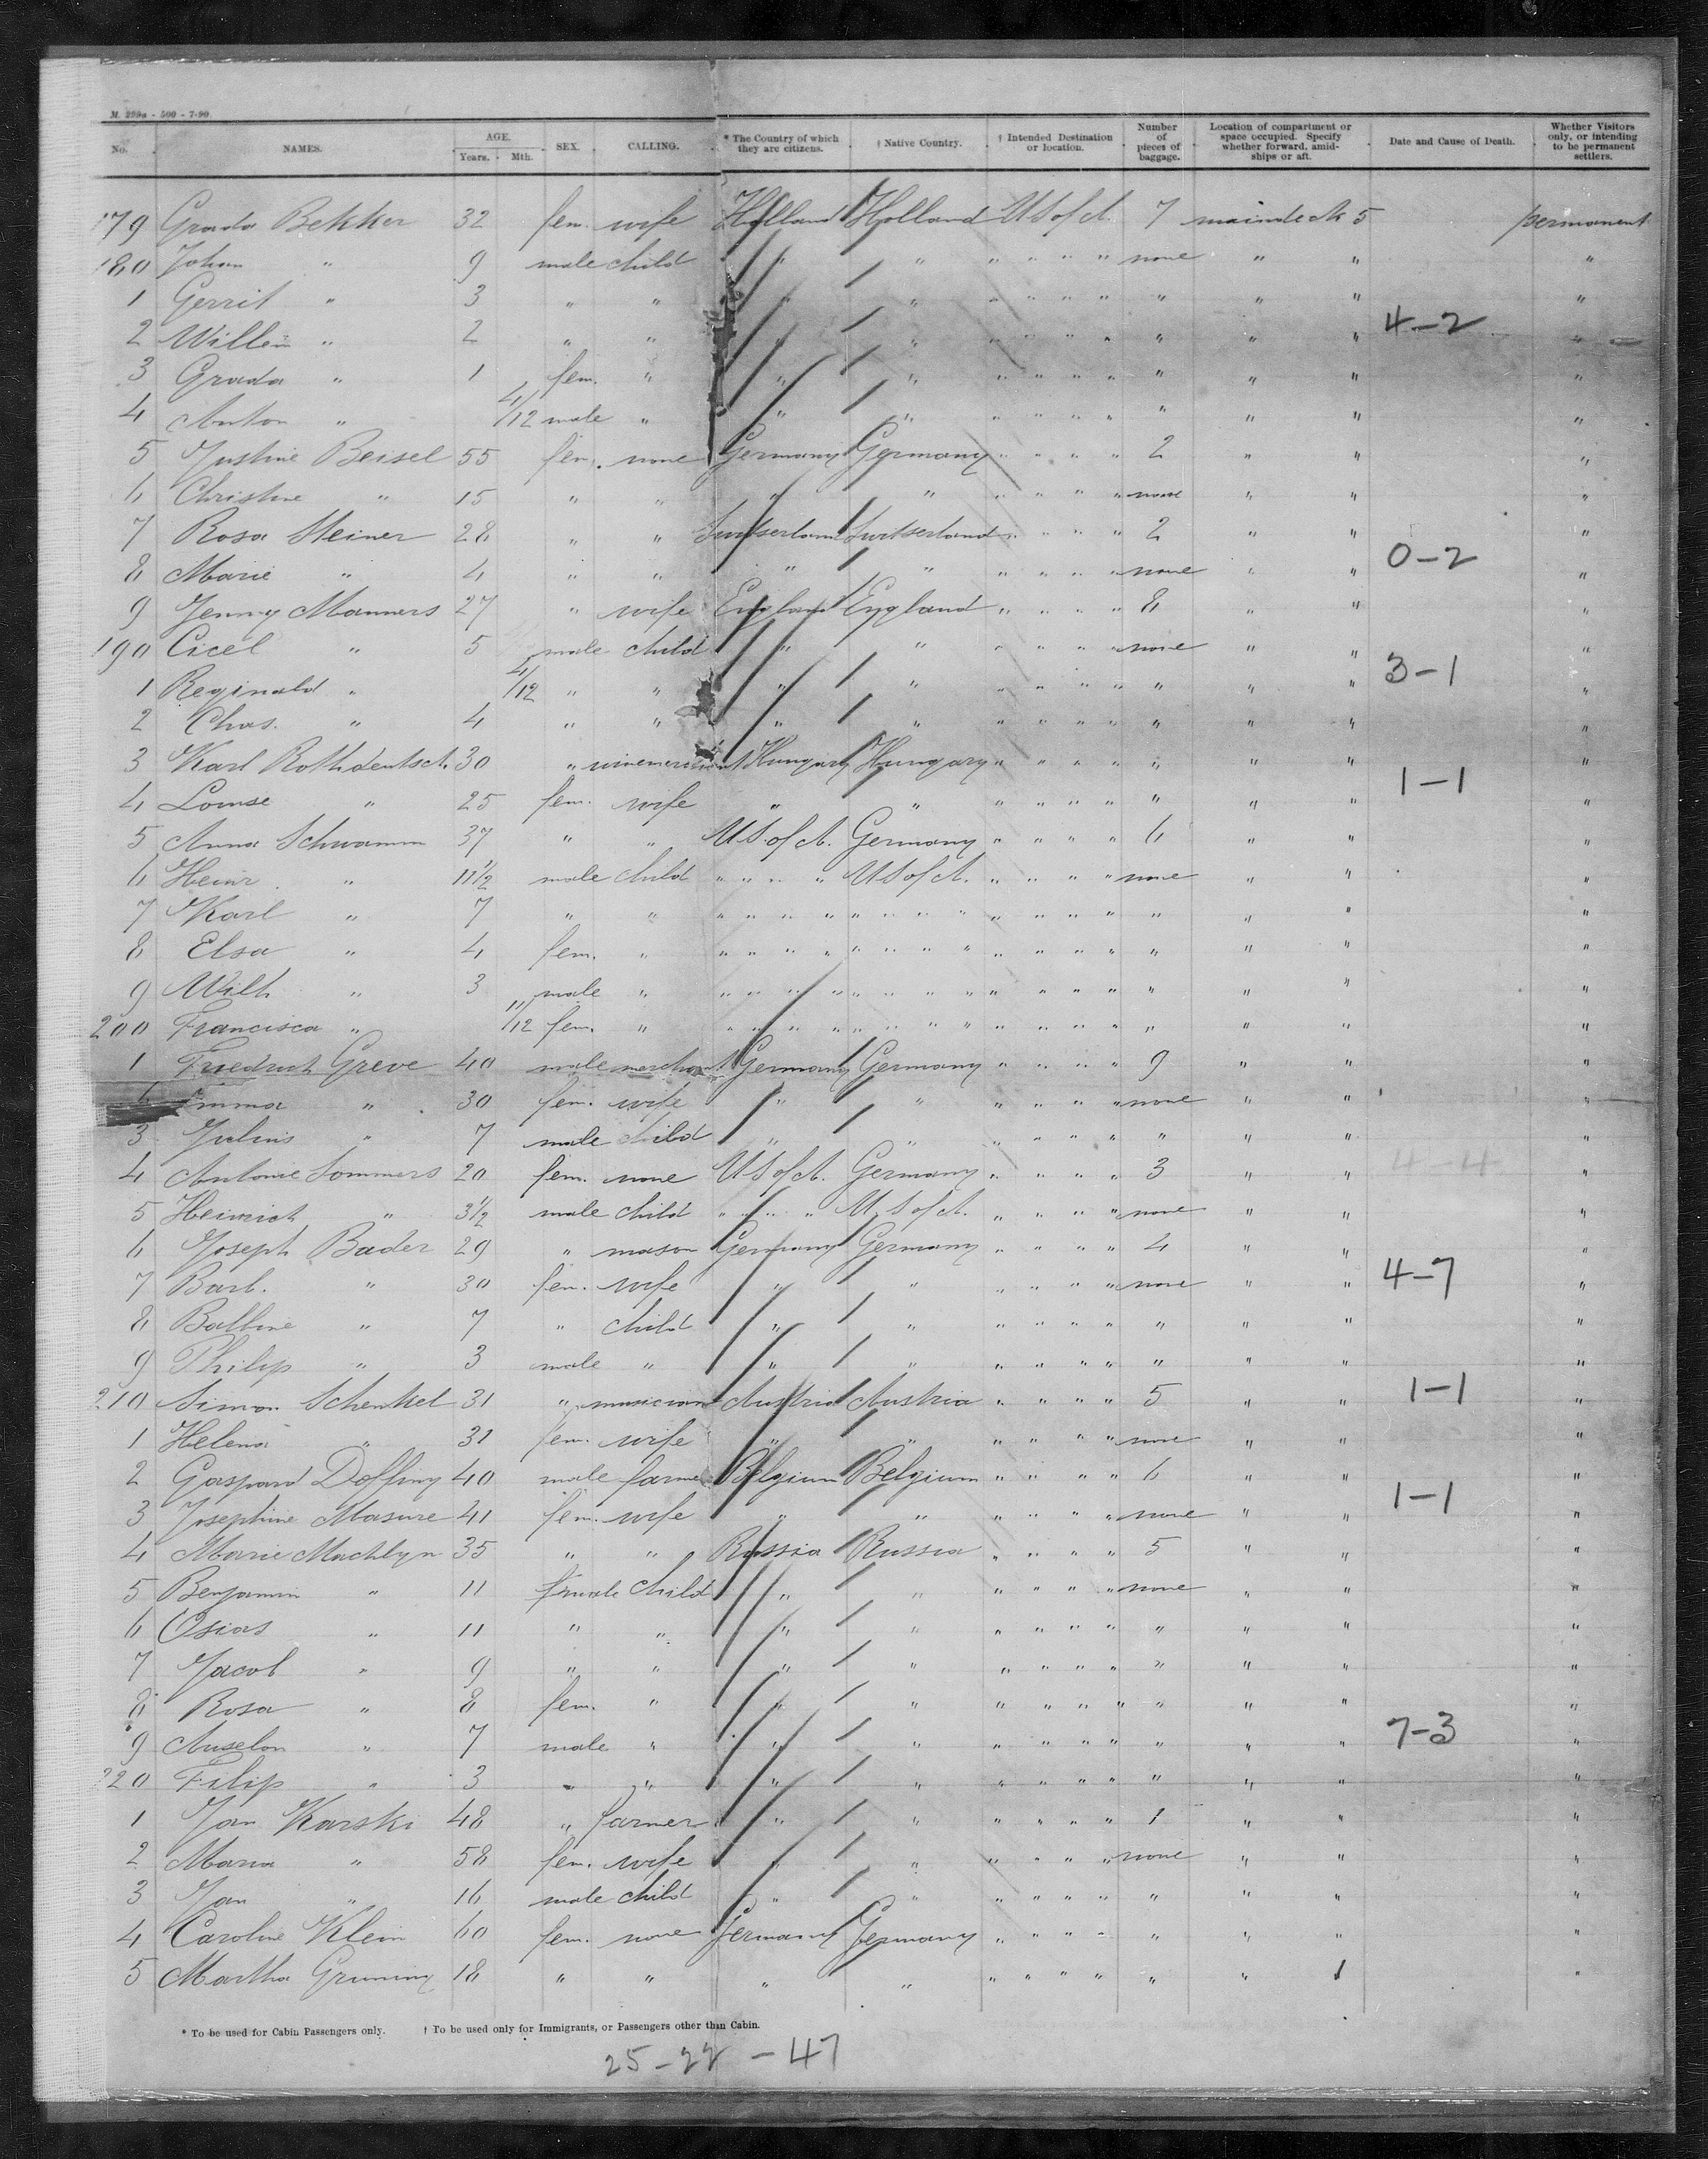 M. 299a - 500 - 7-90
No. NAMES. AGE. Years. Mth. SEX. CALLING. * The Country of which they are citizens. † Native Country. † Intended Destination or location. Number of pieces of baggage. Location of compartment or space occupied. Specify whether forward, amidships or aft. Date and Cause of Death. Whether Visitors only, or intending to be permanent settlers.
179 Grada Bekker 32 fem. wife Holland Holland U S of A. 7 maindeck 5 permanent
180 Johan " 9 male child " " " " " " none " " "
1 Gerrit " 3 " " " " " " " " " " " "
2 Willem " 2 " " " " " " " " " " " 4-2 "
3 Grada " 1 fem. " " " " " " " " " " "
4 Anton " 4/12 male " " " " " " " " " " "
5 Justine Beisel 55 fem. none Germany Germany " " " " 2 " " "
6 Christine " 15 " " " " " " " " none " " "
7 Rosa Steiner 28 " " Switserland Switserland " " " " 2 " " "
8 Marie " 4 " " " " " " " " none " " 0-2 "
9 Jenny Manners 27 " wife England England " " " " 8 " " "
190 Cicel " 5 male child " " " " " " none " " "
1 Reginald " 4/12 " " " " " " " " " " " 3-1 "
2 Chas. " 4 " " " " " " " " " " " "
3 Karl Rothdeutsch 30 " winemerchant Hungary Hungary " " " " " " " "
4 Louise " 25 fem. wife " " " " " " " " " 1-1 "
5 Anna Schwamm 37 " " U S. of A. Germany " " " " 6 " " "
6 Heinr. " 11 1/2 male child " " " " U S of A. " " " " none " " "
7 Karl " 7 " " " " " " " " " " " " " " " " " "
8 Elsa " 4 fem. " " " " " " " " " " " " " " " " "
9 Wilh " 3 male " " " " " " " " " " " " " " " " "
200 Francisca " 11/12 fem. " " " " " " " " " " " " " " " " "
1 Friedrich Greve 40 male merchant Germany Germany " " " " 9 " " "
Emma " 30 fem. wife " " " " " " none " " "
3 Julius " 7 male child " " " " " " " " " "
4 Antonie Sommers 20 fem. none U S of A. Germany " " " " 3 " " 4-4 "
5 Heinrich " 3 1/2 male child " " " " U. S of A. " " " " none " " "
6 Joseph Bader 29 " mason Germany Germany " " " " 4 " " "
7 Barb. " 30 fem. wife " " " " " " none " " 4-7 "
8 Balbine " 7 " child " " " " " " " " " "
9 Philip " 3 male " " " " " " " " " " "
210 Simon Schenkel 31 " musician Austria Austria " " " " 5 " " 1-1 "
1 Helena " 31 fem. wife " " " " " " none " " "
2 Gaspard Doffing 40 male farmer Belgium Belgium " " " " 6 " " "
3 Josephine Masure 41 fem. wife " " " " " " none " " 1-1 "
4 Marie Machlyn 35 " " Russia Russia " " " " 5 " " "
5 Benjamin " 11 male child " " " " " " none " " "
6 Osias " 11 " " " " " " " " " " " "
7 Jacob " 9 " " " " " " " " " " " "
8 Rosa " 8 fem. " " " " " " " " " " "
9 Anselm " 7 male " " " " " " " " " " 7-3 "
220 Filip " 3 " " " " " " " " " " " "
1 Jan Karski 48 " farmer " " " " " " 1 " " "
2 Maria " 58 fem. wife " " " " " " none " " "
3 Jan " 16 male child " " " " " " " " " "
4 Caroline Klein 60 fem. none Germany Germany " " " " " " " "
5 Martha Gruning 18 " " " " " " " " " " "
* To be used for Cabin Passengers only. † To be used only for Immigrants, or Passengers other than Cabin.
25-22 - 47